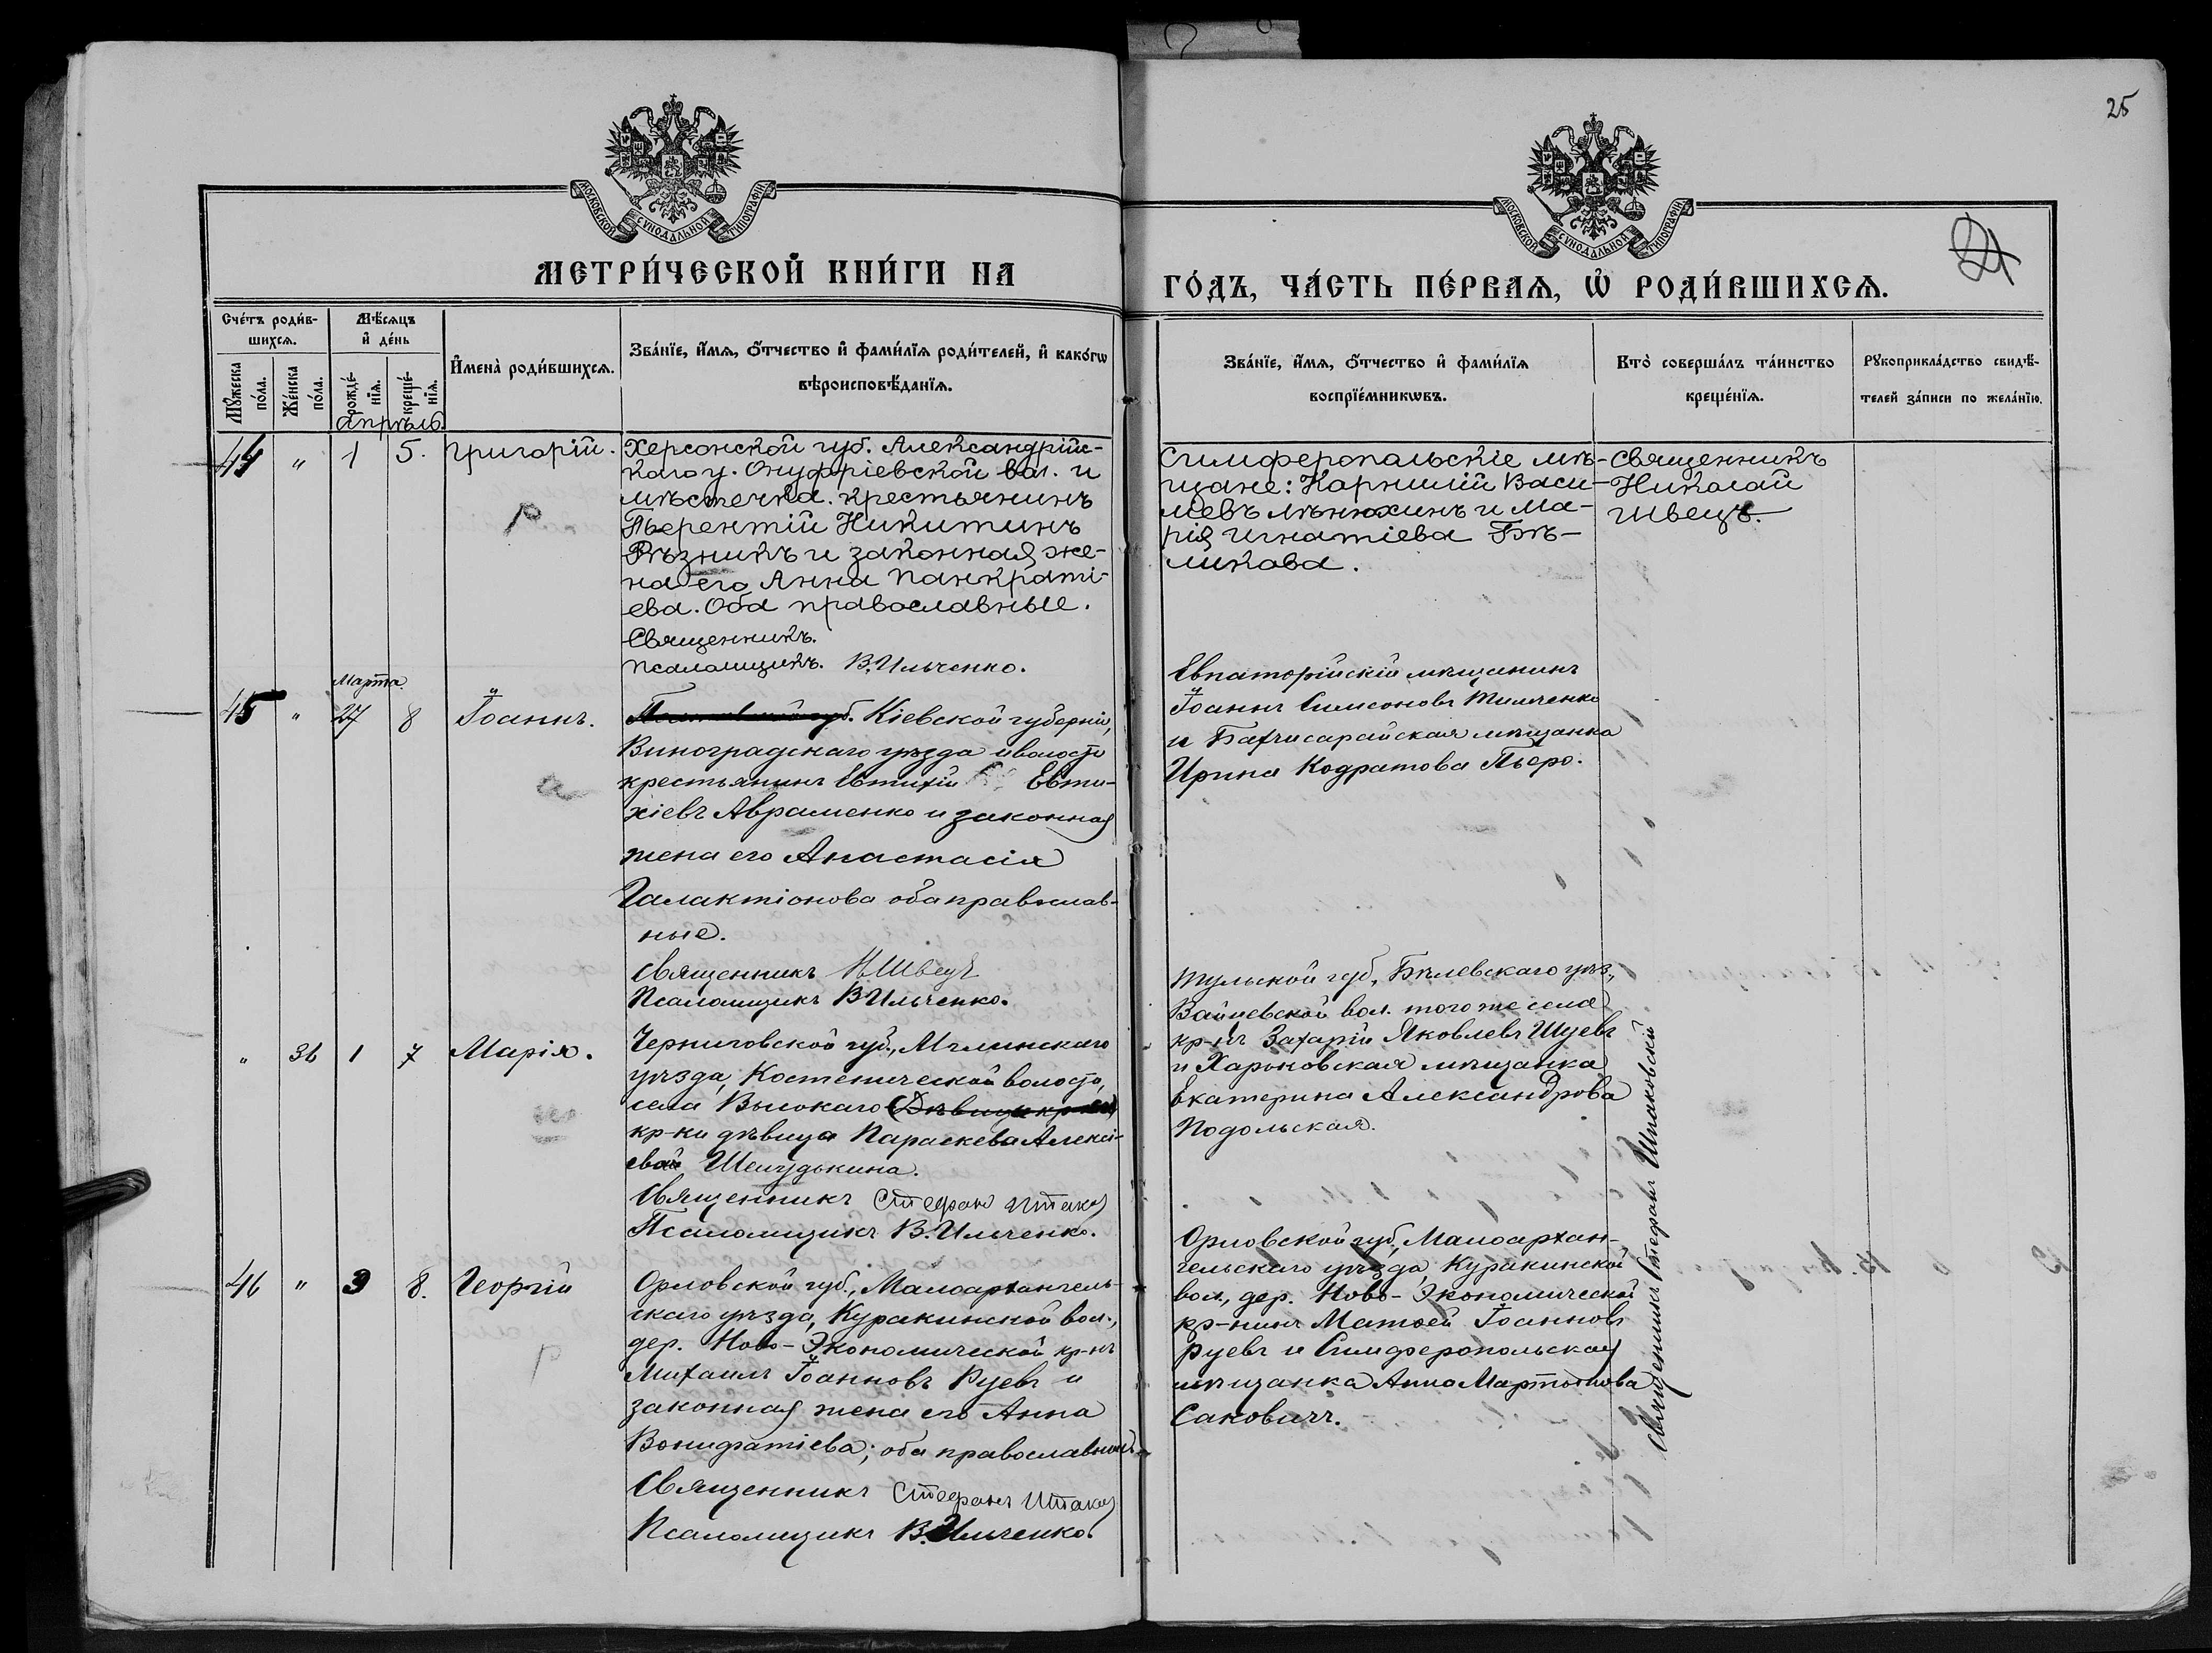 25
МОСКОВСКОЙ СѴНОДАЛЬНОЙ ТИПОГРАФІИ
МОСКОВСКОЙ СѴНОДАЛЬНОЙ ТИПОГРАФІИ
МЕТРИ́ЧЕСКОЙ КНИ́ГИ НА
ГО́ДЪ, ЧА́СТЬ ПЕ́РВАѦ, Ѡ҆ РОДИ́ВШИХСѦ.
Сче́тъ роди́в-
шихсѧ.
Мꙋ́жеска
по́ла.
Же́нска
по́ла.
Мѣ́сѧцъ
и҆ де́нь
рожде́-
нїѧ.
креще́-
нїѧ.
И҆мена̀ роди́вшихсѧ.
Зва́нїе, и҆́мѧ, ѻ҆́тчество и҆ фами́лїѧ роди́телей, и҆ како́гѡ
вѣроисповѣ́данїѧ.
Зва́нїе, и҆́мѧ, ѻ҆́тчество и҆ фами́лїѧ
воспрїе́мникѡвъ.
Кто̀ соверша́лъ та́инство
креще́нїѧ.
Рꙋкоприкла́дство свидѣ́-
телей за́писи по жела́нїю.
Апрѣль
44 " 1 5. Григорій.
Херсонской губ. Александрійс-
каго у. Онуфріевской вол. и
мѣстечка. крестьянинъ
Терентій Никитинъ
Рѣзникъ и законная же-
на его Анна Панкраті-
ева. Оба православные.
Священникъ.
Псаломщикъ. В. Ильченко.
Симферопольскіе мѣ-
щане: Корнилій Васи-
льевъ и Ма-
рія Игнатіева Бѣ-
ликова.
Священникъ
Николай
Швецъ.
Марта
45 " 27 8 Іоаннъ.
Кіевской губерніи,
Виноградскаго уѣзда и волости
крестьянинъ Евтихій Евти-
хіевъ Авраменко и законная
жена его Анастасія
Галактіонова оба православ-
ные.
Священникъ Н Швецъ
Псаломщикъ В Ильченко.
Евпаторійскій мѣщанинъ
Іоаннъ Симеоновъ Тимченко
и Бахчисарайская мѣщанка
Ирина Кодратова Пьеро.
" 36 1 7 Марія.
Черниговской губ., Мглинскаго
уѣзда, Костеничской волости,
села Высокаго
кр-ки дѣвица Параскева Алексі-
Шелудькина.
Священникъ Стефанъ
Псаломщикъ В. Ильченко.
Тульской губ., Бѣлевскаго уѣз.,
вол. того же села
кр-нъ Захарій Яковлевъ Шуевъ
и Харьковская мѣщанка
Екатерина Александрова
Подольская.
Священникъ Стефанъ Шпаковскій
46 " 3 8. Георгій
Орловской губ., Малоархангель-
скаго уѣзда, Куракинской вол.,
дер. Ново-Экономической кр-нъ
Михаилъ Іоанновъ Руевъ и
законная жена его Анна
Вонифатіева; оба православные.
Священникъ Стефанъ
Псаломщикъ В. Ильченко.
Орловской губ., Малоархан-
гельскаго уѣзда, Куракинской
вол., дер. Ново-Экономической
кр-нинъ Матѳей Іоанновъ
Руевъ и Симферопольская
мѣщанка Анна Мартынова
Саковичъ.